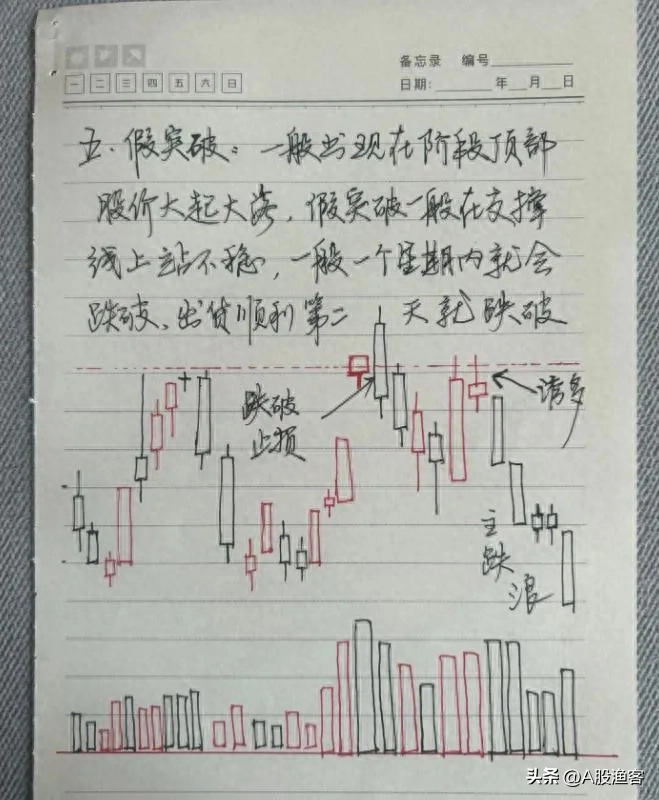 备忘录 编号
一 二 三 四 五 六 日
日期: 年 月 日
五、假突破:一般出现在阶段顶部
股价大起大落,假突破一般在支撑
线上站不稳,一般一个星期内就会
跌破、出货顺利第二 天就跌破
跌破
止损
诱多
主
跌
浪
头条 @A股渔客